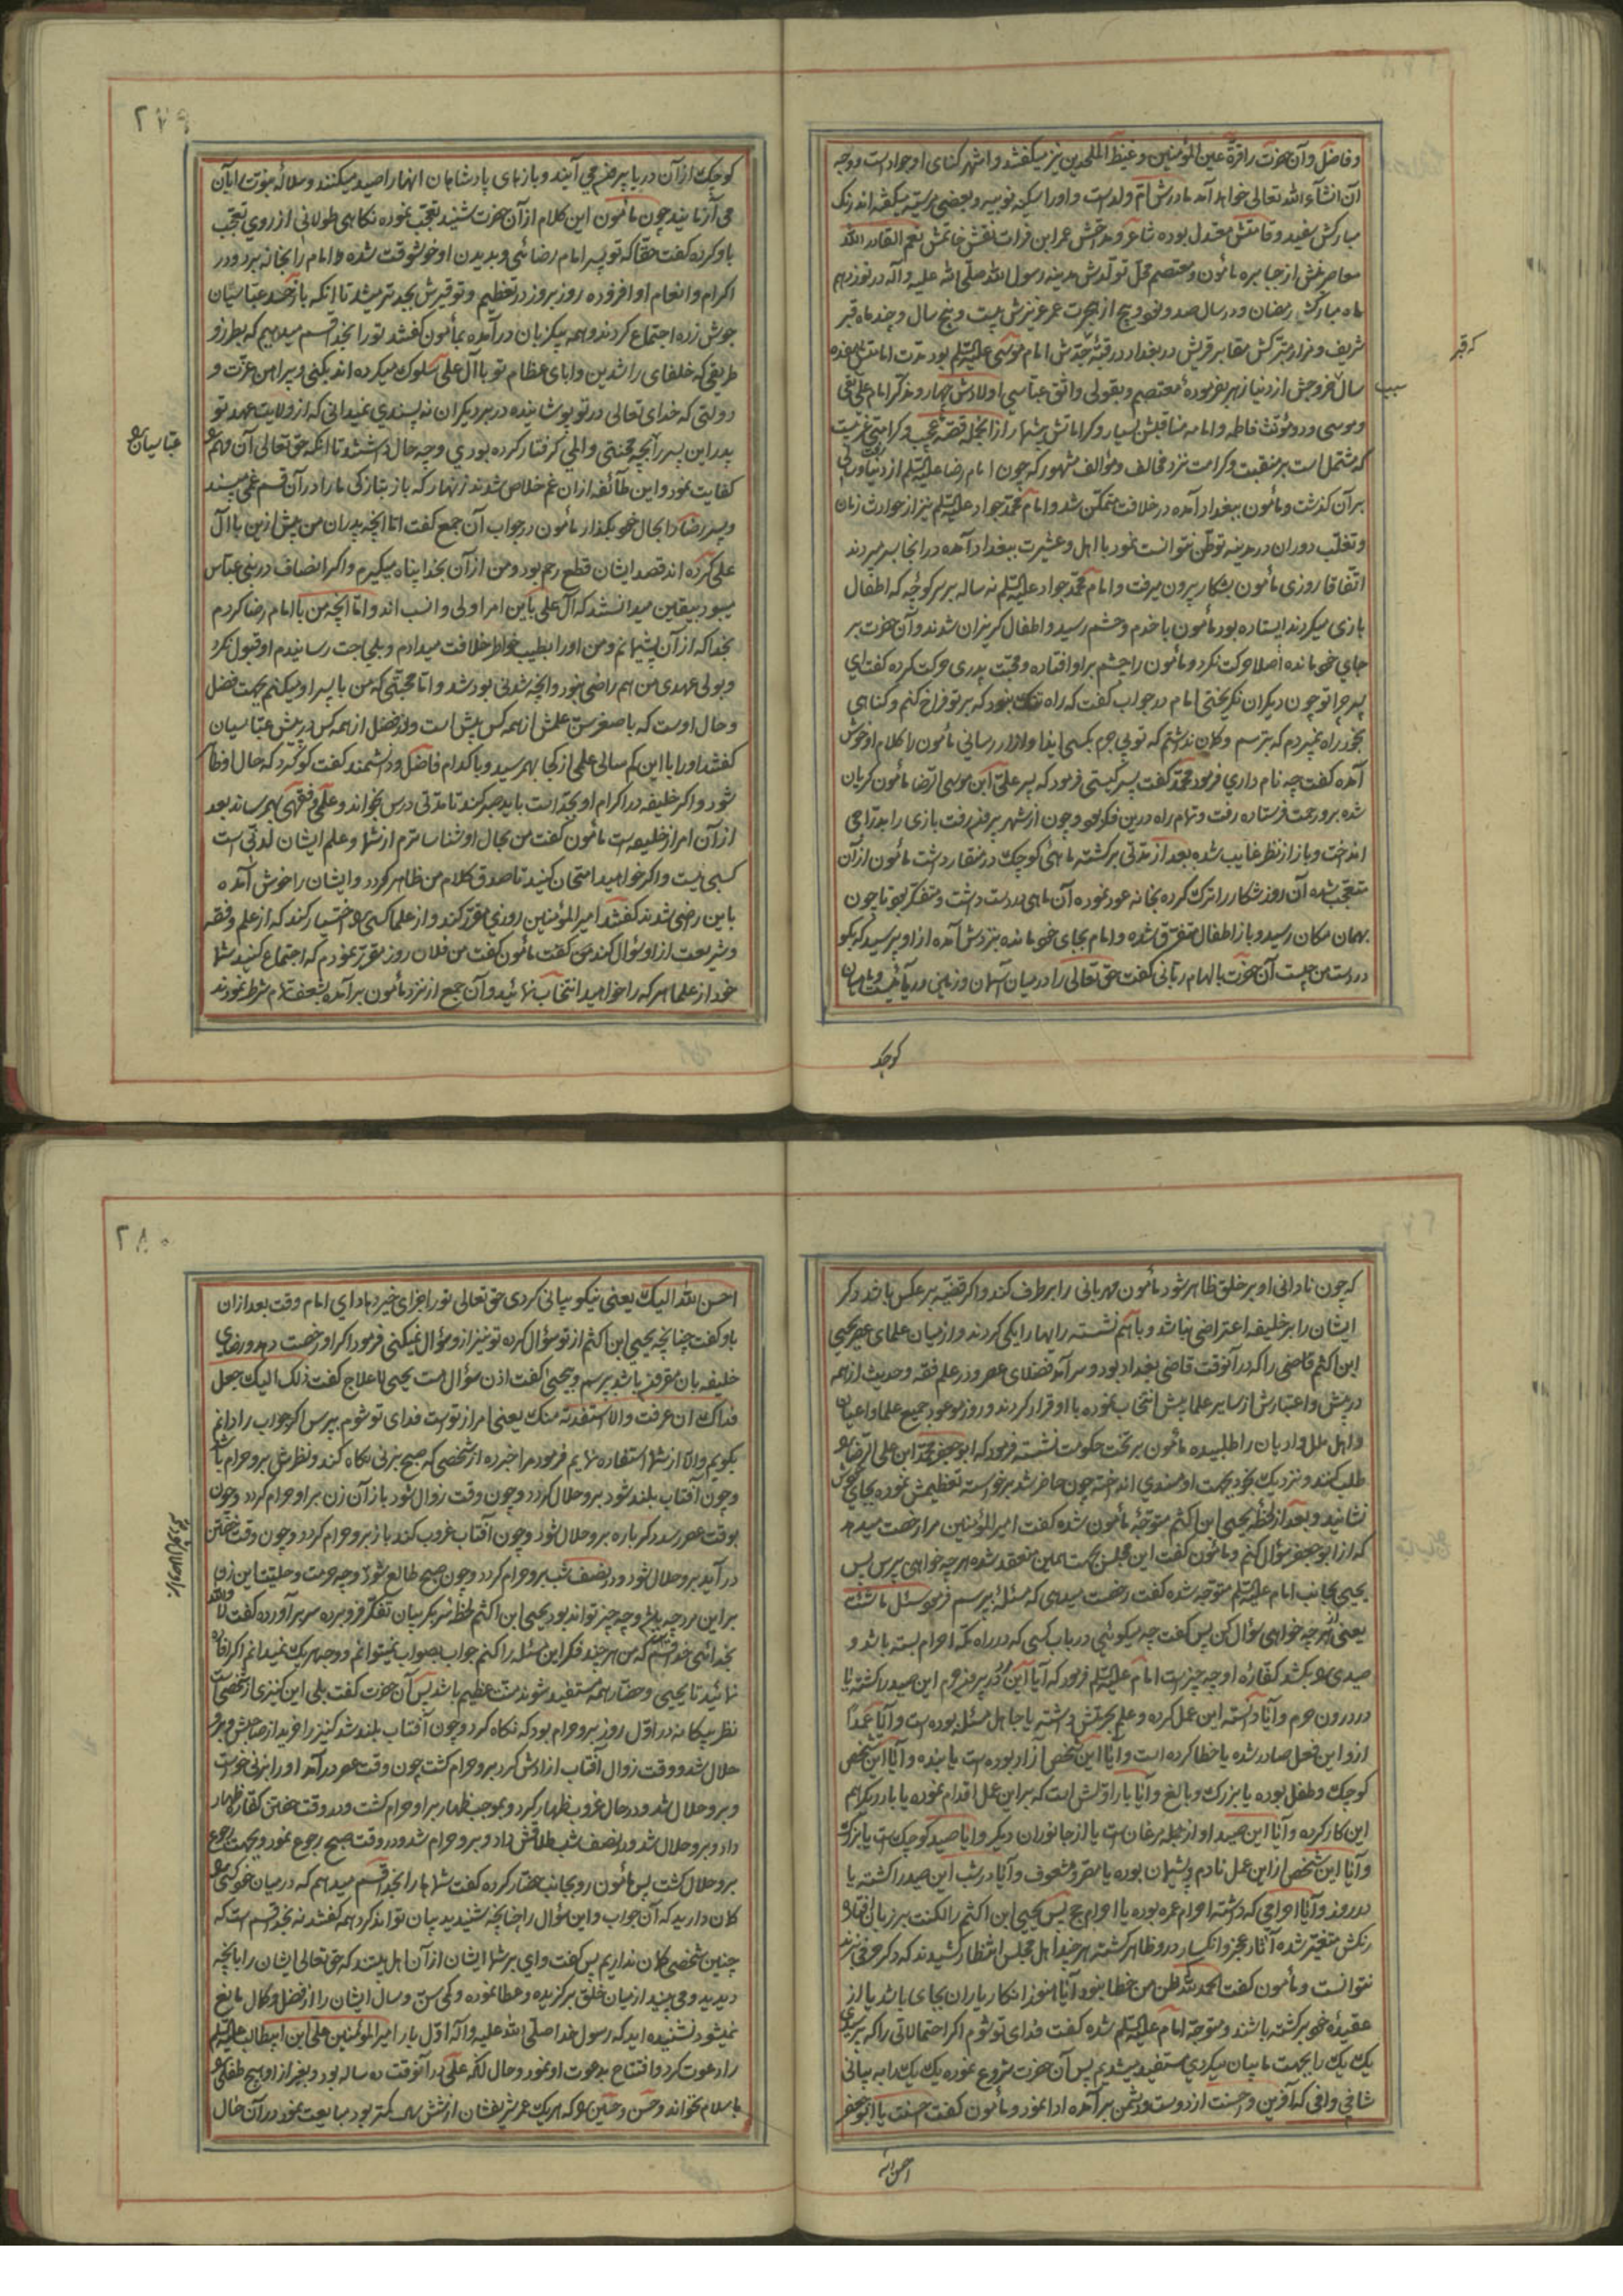 و فاضل و آن حضرت را قرة عین المؤمنین و غیظ الملحدین نیز میگفتند و اشهر کنای او جوادست و وجه
آن انشاء الله تعالی خواهد آمد مادرش ام ولدست و او را سکینه نوبیه و بعضی مریسیه میگفته‌اند رنک
مبارکش سفید و قامتش معتدل بوده شاعر و مداحش عمر ابن فرات نقش خاتمش نعم القادر الله
معاصرینش از جبابره مأمون و معتصم محل تولدش مدینه رسول الله صلی الله علیه و آله در نوزدهم
ماه مبارک رمضان و در سال صد و نود و پنج از هجرت عمر عزیزش بیست و پنج سال و چند ماه قبر
شریف و مزار متبرکش مقابر قریش در بغداد در قبه جدش امام موسی علیه السلام بود مدت امامتش هفده
سال خروجش از دنیا زهر بفرموده معتصم و بقولی واثق عباسی اولادش چهار دو مذکر امام علی نقی
و موسی و دو مؤنث فاطمه و امامه مناقبش بسیار و کراماتش بیشمار از آنجمله قصه عجیب و کرامتی غریبست
که مشتمل است بر منقبت و کرامت نزد مخالف و مؤالف مشهور که چون امام رضا علیه السلام از دنیا رفت و سالی
بر آن گذشت و مأمون ببغداد آمده در خلافت متمکن شد و امام محمد جواد علیه السلام نیز از حوادث زمان
و تغلب دوران در مدینه توطن نتوانست نمود با اهل و عشیرت ببغداد آمده در آنجا بسر میبردند
اتفاقا روزی مأمون بشکار بیرون میرفت و امام محمد جواد علیه السلام نه ساله بر سر کوچه که اطفال
بازی میکردند ایستاده بود مأمون با خدم و حشم رسید و اطفال گریزان شدند و آن حضرت بر
جای خود مانده اصلا حرکت نکرد و مأمون را چشم بر او افتاده و محبت پدری حرکت کرده گفت ای
پسر چرا تو چون دیگران نگریختی امام در جواب گفت که راه تنک نبود که بر تو فراخ کنم و گناهی
بخود راه نمیبردم که بترسم و گمان نداشتم که تو بی جرم بکسی ایذا و آزار رسانی مأمون را کلام او خوش
آمده گفت چه نام داری فرمود محمد گفت پسر کیستی فرمود که پسر علی ابن موسی الرضا مأمون گریان
شده برو رحمت فرستاده رفت و تمام راه درین فکر بود و چون از شهر بیرون رفت بازی را بدراجی
انداخت و باز از نظر غایب شده بعد از مدتی برگشته ماهیٔ کوچک در منقار داشت مأمون از آن
متعجب شده آن روز شکار را ترک کرده بخانه عود نموده آن ماهی در دست داشت و متفکر بود تا چون
بهمان مکان رسید و باز اطفال متفرق شده و امام بجای خود مانده بنزدش آمده از او پرسید که بگو
در دست من چیست آن حضرت بالهام ربانی گفت حق تعالی را در میان آسمان و زمین دریائیست و ماهیان
کوچک
که قبر
سبب
۲۷۹
کوچک از آن دریا بیرون می آیند و بازهای پادشاهان آنها را صید میکنند و سلالهٔ نبوت را بآن
می آزمایند چون مأمون این کلام از آن حضرت شنید تعجب نموده نگاهی طولانی از روی تعجب
باو کرده گفت حقا که تو پسر امام رضائی و بدیدن او خوشوقت شده و امام را بخانه برد و در
اکرام و انعام او افزوده روز بروز در تعظیم و توقیرش بجدتر میشد تا اینکه باز حسد عباسیان
جوش زده اجتماع کردند و همه یکزبان در آمده بمأمون گفتند تو را بخدا قسم میدهیم که بطرز و
طریقی که خلفای راشدین و ابای عظام تو با آل علی سلوک میکرده‌اند بکنی و پیراهن عزت و
دولتی که خدای تعالی در تو پوشانیده در بر دیگران نه پسندی نمیدانی که از ولایت عهد تو
پدر این پسر را بچه محنتی و المی گرفتار کرده بودی و چه حال داشتند تا آنکه حق تعالی آن مهم
کفایت نمود و این طائفه از آن غم خلاص شدند زنهار که باز بتازگی ما را در آن قسم غمی مپسند
و پسر رضا را بحال خود بگذار مأمون در جواب آن جمع گفت اما آنچه پدران من پیش ازین با آل
علی کرده‌اند قصد ایشان قطع رحم بود و من از آن بخدا پناه میگیرم و اگر انصاف در بنی عباس
میبود بیقین میدانستند که آل علی باین امر اولی و انسب اند و اما آنچه من با امام رضا کردم
بخدا که از آن پشیمانم و من او را بطیب خاطر خلافت میدادم و بلجاجت رسانیدم او قبول نکرد
و بولی عهدی من هم راضی نبود و آنچه شدنی بود شد و اما محبتی که من با پسر او میکنم بجهت فضل
و حال اوست که با صغر سن علمش از همه کس بیش است و در فضل از همه کس در پیش عباسیان
گفتند او را با این کم سالی علمی از کجا بهم رسید و با کدام فاضل و دانشمند گفت گو کرد که حال او ظاهر
شود و اگر خلیفه در اکرام او بجد است باید صبر کند تا مدتی درس بخواند و علمی و فقهی بهم رساند بعد
از آن امر از خلیفه است مأمون گفت من بحال او شناساترم از شما و علم ایشان لدنی است
کسبی نیست و اگر خواهید امتحان کنید تا صدق کلام من ظاهر گردد و ایشان را خوش آمده
باین راضی شدند گفتند امیر المؤمنین روزی مقرر کند و از علما کسی را اختیار کند که از علم و فقه
و شریعت از او سؤال کند من گفت مأمون گفت من فلان روز مقرر نمودم که اجتماع کنید شما
خود از علما هر که را خواهید انتخاب نمائید و آن جمع از نزد مأمون بر آمده بشعف تمام شرط نمودند
عباسیان را
که چون نادانی او بر خلق ظاهر شود مأمون مهربانی را بر طرف کند و اگر قضیه بر عکس باشد دگر
ایشان را بر خلیفه اعتراضی نباشد و با هم نشسته رایها را یکی کردند و از میان علمای عصر یحیی
ابن اکثم قاضی را که در آنوقت قاضی بغداد بود و سر آمد فضلای عصر و در علم فقه و حدیث از همه
در پیش و اعتبارش از سایر علما بیش انتخاب نموده با او قرار کردند و روز موعود جمیع علما و اعیان
و اهل ملل و ادیان را طلبیده مأمون بر تخت حکومت نشسته فرمود که ابو جعفر محمد ابن علی الرضا را
طلب کنند و نزدیک بخود بجهت او مسندی انداخته چون حاضر شد برخواسته تعظیمش نموده بجای خوش
نشانید و بعد از لحظه یحیی ابن اکثم متوجه مأمون شده گفت امیر المؤمنین مرا رخصت میدهد
که از ابو جعفر سؤال کنم و مأمون گفت این مجلس بجهت همین منعقد شده هر چه خواهی پرس پس
یحیی بجانب امام علیه السلام متوجه شده گفت رخصت میدهی که مسئله بپرسم فرمود سئل ما شئت
یعنی از هر چه خواهی سؤال کن پس گفت چه میگوئی در باب کسی که در راه مکه احرام بسته باشد و
صیدی را بکشد کفاره او چه چیز است امام علیه السلام فرمود که آیا این مرد در بیرون حرم این صید را کشته یا
در درون حرم و آیا دانسته این عمل کرده و علم بحرمتش داشته یا جاهل مسئله بوده است و آیا عمداً
ازو این فعل صادر شده یا خطا کرده است و آیا این شخص آزاد بوده است یا بنده و آیا این شخص
کوچک و طفل بوده یا بزرگ و بالغ و آیا بار اولش است که بر این عمل اقدام نموده یا بار دیگر هم
این کار کرده و آیا این صید او از جمله مرغان است یا از جانوران دیگر و آیا صید کوچک است یا بزرک
و آیا این شخص از این عمل نادم و پشیمان بوده یا مقر و مشعوف و آیا در شب این صید را کشته یا
در روز و آیا احرامی که داشته احرام عمره بوده یا احرام حج پس یحیی ابن اکثم را لکنت بر زبان افتاد و
رنگش متغیر شده آثار عجز و انکسار درو ظاهر گشته هر چند اهل مجلس انتظار کشیدند که دگر حرفی بزند
نتوانست و مأمون گفت الحمد لله ظن من خطا نبود آیا هنوز انکار یاران بجای باشد یا از
عقیده خود برگشته باشند و متوجه امام علیه السلام شده گفت فدای تو شوم اگر احتمالاتی را که برسیدی
یک یک را بجهت ما بیان میکردی مستفید میشدیم پس آن حضرت شروع نموده یک یک را به بیانی
شافی و وافی که آفرین و احسنت از دوست و دشمن بر آمده ادا نمود و مأمون گفت احسنت یا ابو جعفر
احسن الله
۲۸۰
احسن الله الیک یعنی نیکو بیانی کردی حق تعالی تو را جزای خیر دهاد ای امام وقت بعد از آن
باو گفت چنانچه یحیی ابن اکثم از تو سؤال کرده تو نیز ازو سؤال نمیکنی فرمود اگر او رخصت دهد و رضای
خلیفه بان مقرون باشد بپرسم و یحیی گفت اذن سؤال هست یحیی لا علاج گفت ذلک الیک جعل
فداک ان عرفت و الا استفدته منک یعنی امر از توست فدای تو شوم بپرس اگر جواب را دانم
بگویم و الا از شما استفاده نمایم فرمود مرا خبر ده از شخصی که صبح بزنی نگاه کند و نظرش برو حرام باشد
و چون آفتاب بلند شود برو حلال گردد و چون وقت زوال شود باز آن زن بر او حرام گردد و چون
بوقت عصر رسد دگر باره برو حلال شود و چون آفتاب غروب کند باز برو حرام گردد و چون وقت خفتن
در آید برو حلال شود و در نصف شب برو حرام گردد و چون صبح طالع شود و چه حرمت و حلیت این زن
بر این مرد چه باشد و چه چیز تواند بود یحیی ابن اکثم لحظه سر بگریبان تفکر فرو برده سر بر آورده گفت لا و الله
بخدائی خدا قسم که من هر چند فکر این مسئله را کنم جواب بصواب نمیتوانم و وجه هر یک نمیدانم اگر افاده
نمائید تا یحیی و حضار همه مستفید شوند منت عظیم باشد پس آن حضرت گفت بلی این کنیزی از شخصی است
نظر بیگانه در اول روز برو حرام بود که نگاه کرد و چون آفتاب بلند شد کنیز را خرید از صاحبش و برو
حلال شد و وقت زوال آفتاب ازادش کرد برو حرام گشت چون وقت عصر در آمد او را بزنی خواست
و برو حلال شد و در حال غروب ظهار کرد و بموجب ظهار بر او حرام گشت و در وقت خفتن کفاره ظهار
داد و برو حلال شد و در نصف شب طلاقش داد و برو حرام شد و در وقت صبح رجوع نمود و بجهت رجوع
برو حلال گشت پس مأمون رو بجانب حضار کرده گفت شما ها را بخدا قسم میدهم که در میان خود کسی را
گمان دارید که آن جواب و این سؤال را چنانچه شنیدید بیان تواند کرد همه گفتند نه بخدا قسم است که
چنین شخصی گمان نداریم پس گفت وای بر شما ایشان از آن اهل بیتند که حق تعالی ایشان را بآنچه
دیدید و می بینید از میان خلق برگزیده و عطا نموده و کمی سن و سال ایشان را از فضل و کمال مانع
نمیشود نشنیده اید که رسول خدا صلی الله علیه و اله اول بار امیر المؤمنین علی ابن ابیطالب علیه السلام
را دعوت کرد و افتتاح بدعوت او نمود و حال آنکه علی در آنوقت ده ساله بود و بغیر از او هیچ طفلی را
باسلام نخواند و حسن و حسین را که هر یک عمر شریفشان از شش سال کمتر بود مبایعت نمود در آن حال